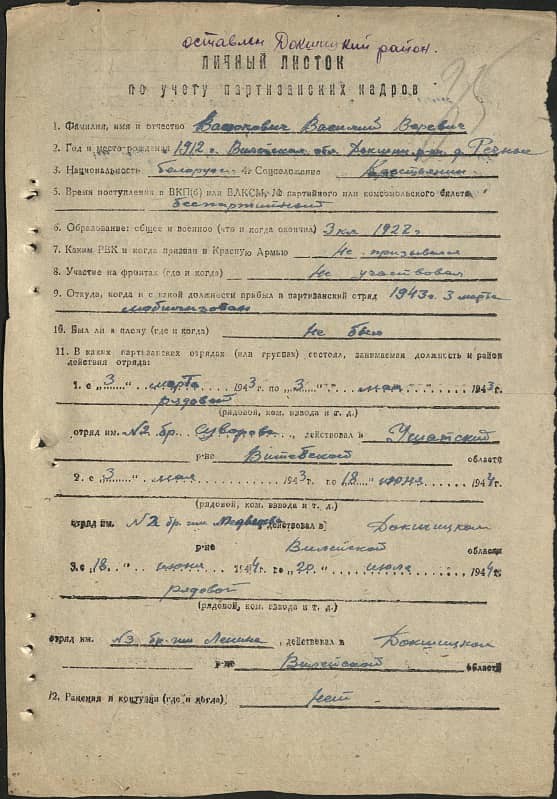 оставлен Докшицкий район.
ЛИЧНЫЙ ЛИСТОК
по учету партизанских кадров
1. Фамилия, имя и отчество Василий
2. Год и место рождения 1912 г. Вилейская обл. Докшиц. д.
3. Национальность белорус 4. Соцположение Крестьянин
5. Время поступления в ВКП(б) или ВЛКСМ, № партийного или комсомольского билета
беспартийный
6. Образование: общее и военное (что и когда окончил) 3 кл 1922 г.
7. Каким РВК и когда призван в Красную Армию Не призывался
8. Участие на фронтах (где и когда) Не участвовал
9. Откуда, когда и с какой должности прибыл в партизанский отряд 1943 г. 3 марта
мобилизован
10. Был ли в плену (где и когда) Не был
11. В каких партизанских отрядах (или группах) состоял, занимаемая должность и район
действия отряда:
1. с „3“ марта 1943 г. по „3“ мая 1943 г.
рядовой
(рядовой, ком. взвода и т. д.)
отряд им. №2 бр. Суворова, действовал в Ушатский
р-не Витебской области
2. с „3“ мая 1943 г. по „18“ июня 1944 г.
(рядовой, ком. взвода и т. д.)
отряд им. №2 бр. им Медведева действовал в Докшицком
р-не Вилейской области
3. с „18“ июня 1944 г. по „20“ июля 1944 г.
рядовой
(рядовой, ком. взвода и т. д.)
отряд им. №3 бр. им Ленина, действовал в Докшицком
р-не Вилейской области
12. Ранения и контузии (где и когда) нет